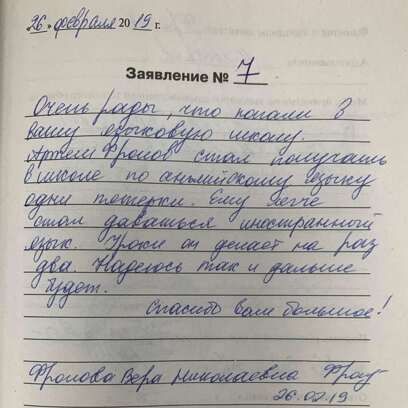 26 февраля 2019 г.
Заявление № 7
Очень рады, что попали в
вашу языковую школу.
Артем Фролов стал получать
в школе по английскому языку
одни пятерки. Ему легче
стал даваться иностранный
язык. Уроки он делает на раз
два. Надеюсь так и дальше
будет.
Спасибо Вам большое!
Фролова Вера Николаевна
26.02.19